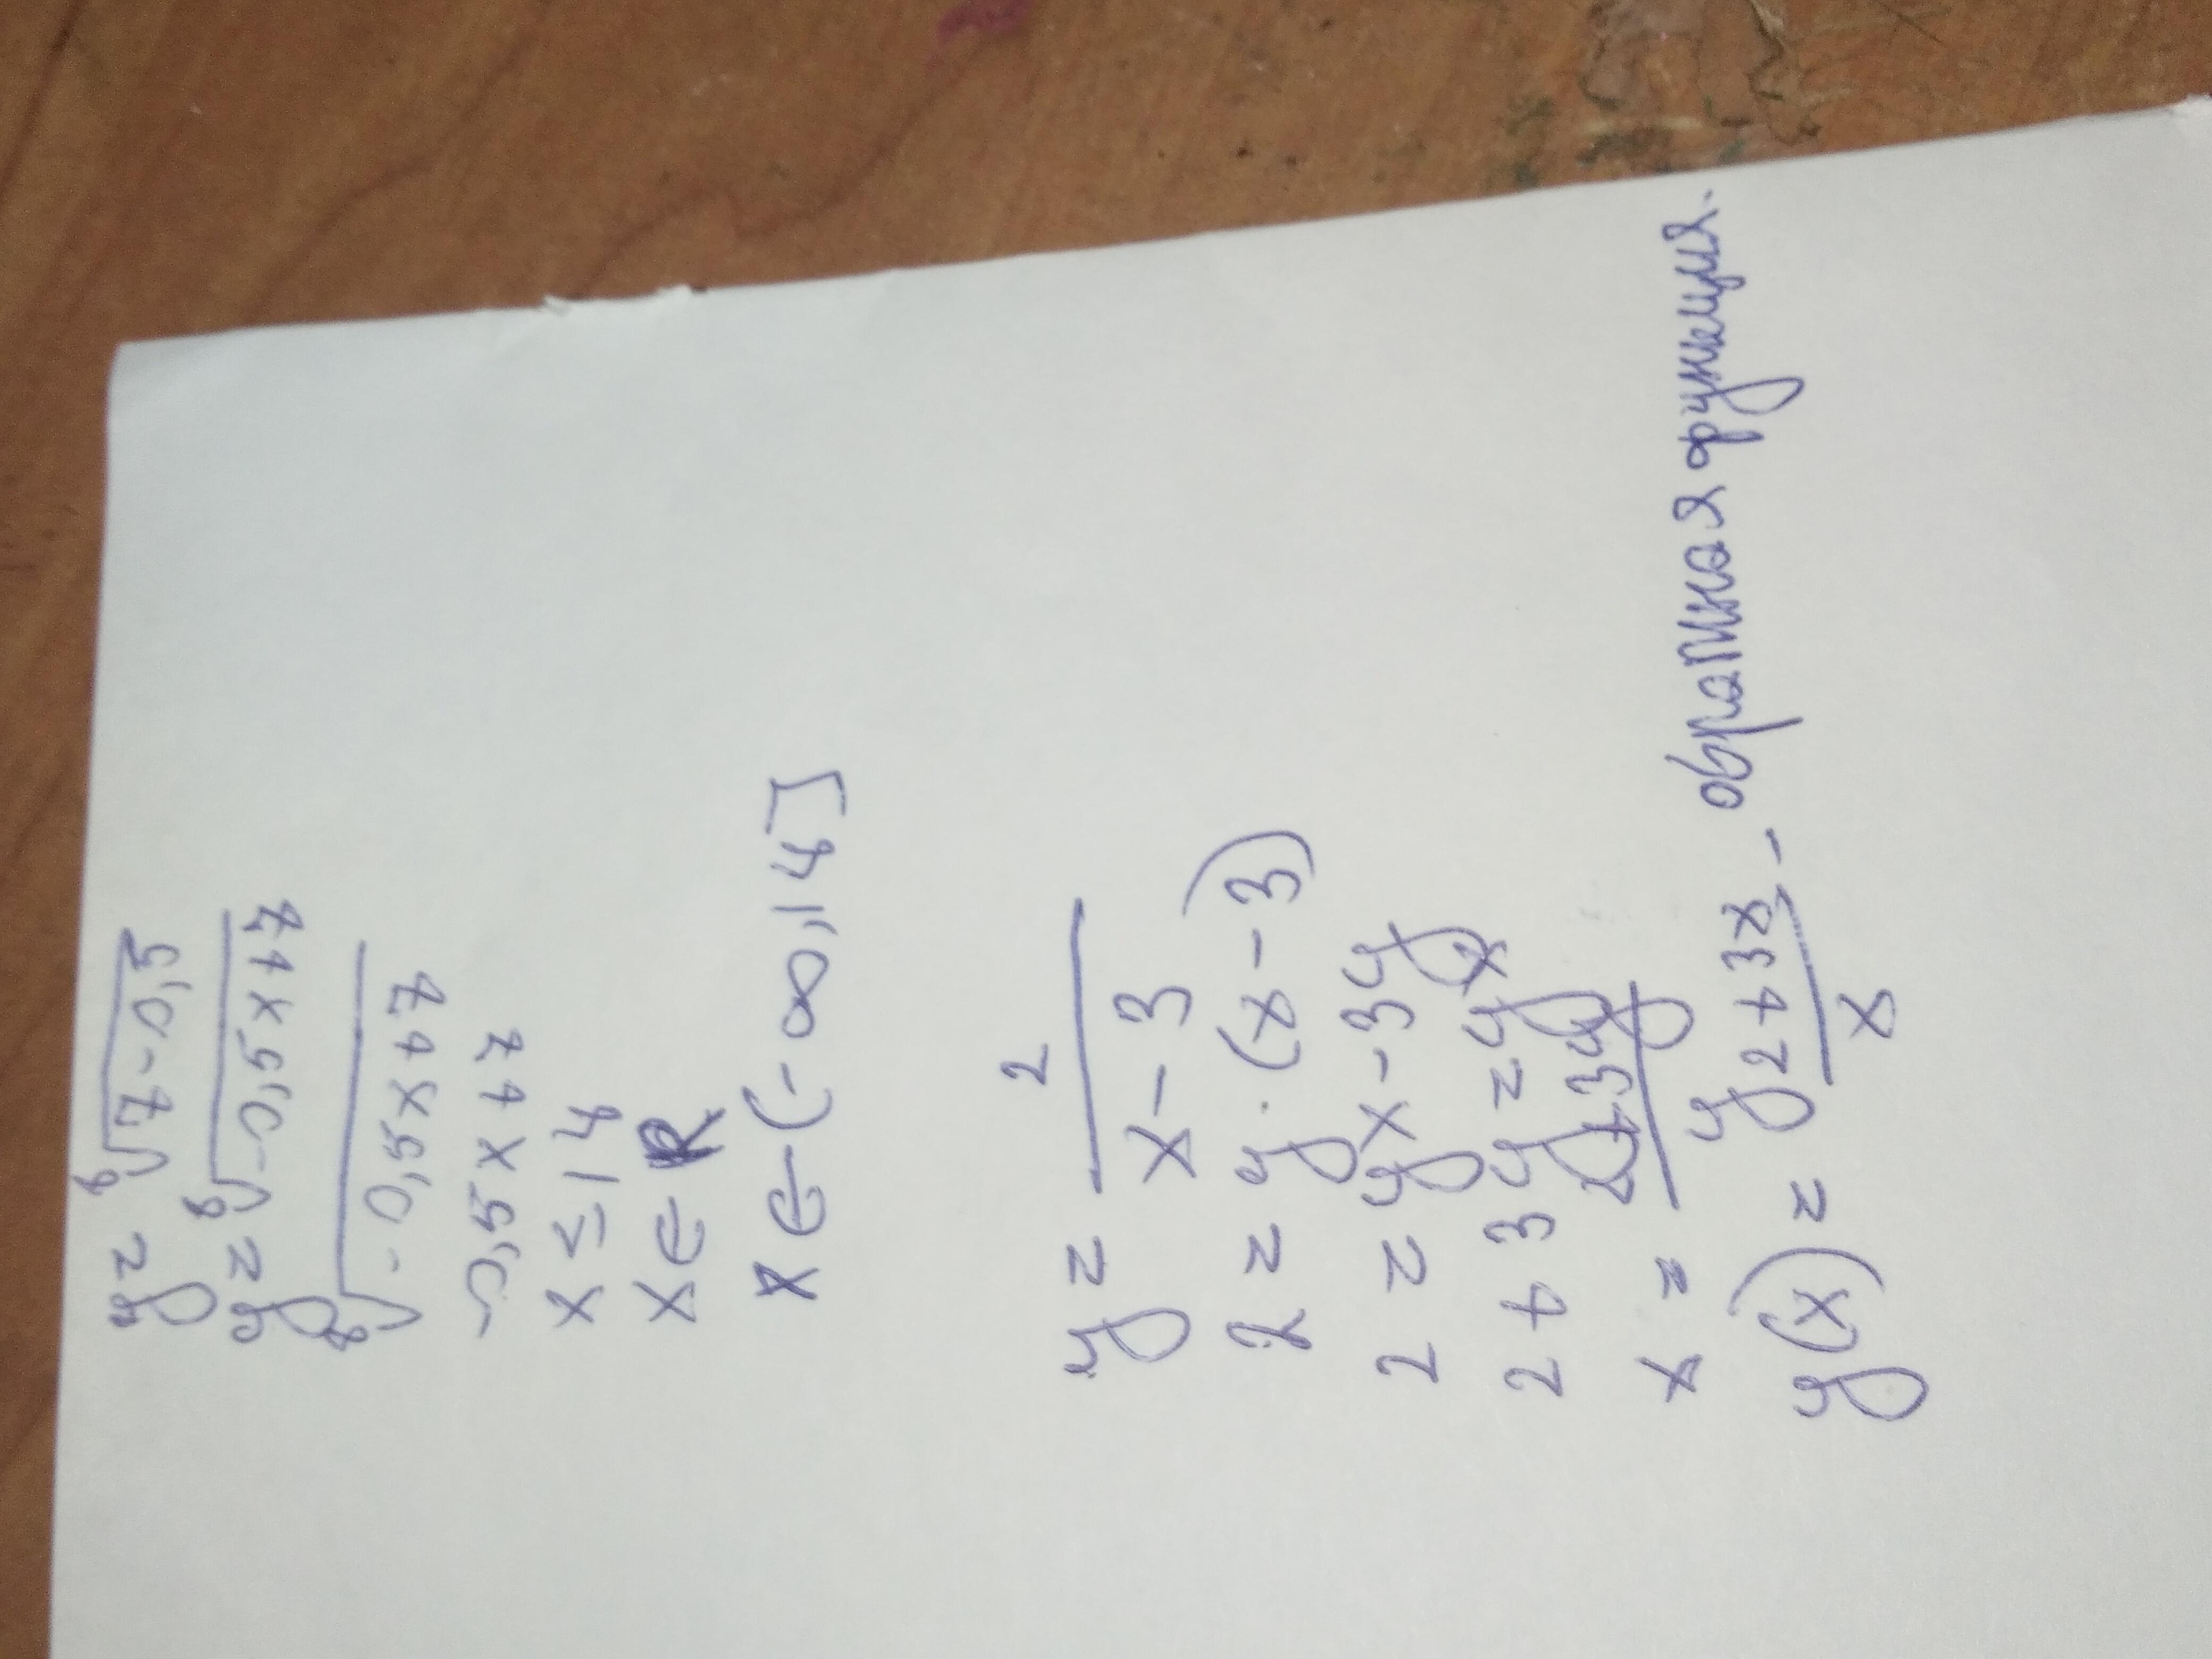 y = ⁸√7-0,5
y = ⁸√-0,5x+7
⁸√-0,5x+7
-0,5x+7
x ≤ 14
x ∈ R
x ∈ (-∞, 14]
y = 2/(x-3)
2 = y · (x-3)
2 = yx-3y
2+3y = yx
x = (2+3y)/y
y(x) = y (2+3x)/x - обратная функция.